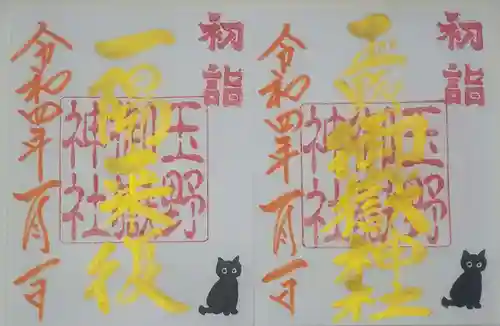 初詣
玉野御嶽神社
玉野
御嶽
神社
令和四年一月一日
初詣
一陽来復
玉野
御嶽
神社
令和四年一月一日